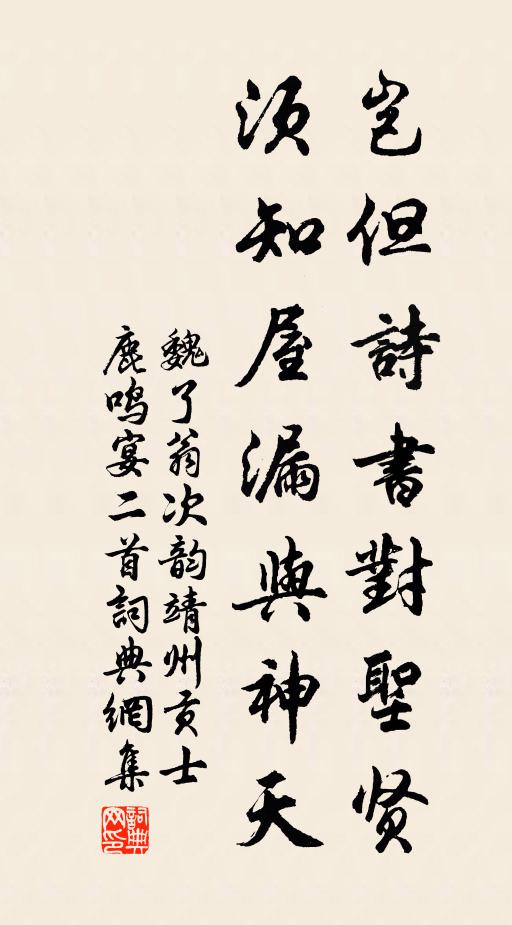 岂但詩書對聖贤
須知屋漏與神天
魏了翁次韵靖州贡士
鹿鸣宴二首詞典網集
詞典
网印